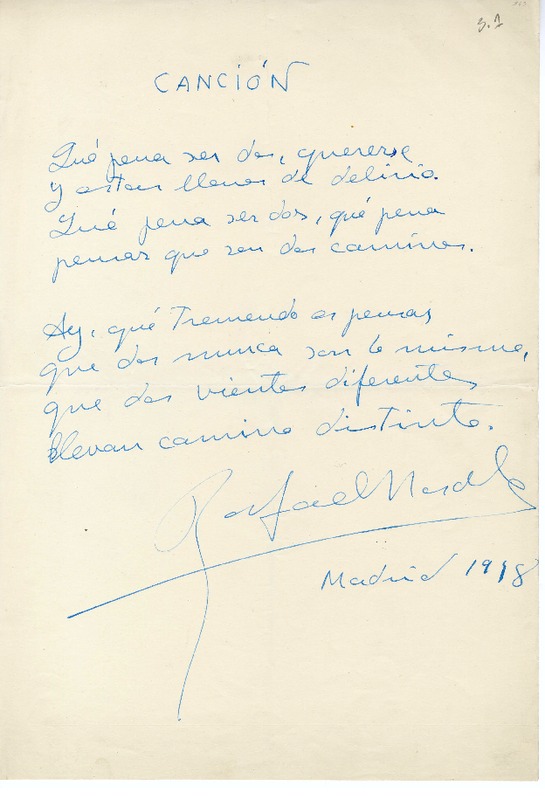 S.1
CANCIÓN
Qué pena ser dos, quererse
y estar llenos de delirio.
Qué pena ser dos, qué pena
pensar que son dos caminos.
Ay, qué Tremendo es pensar
que dos nunca son lo mismo,
que dos vientos diferentes
llevan camino distinto.
Rafael Morales
Madrid 1948